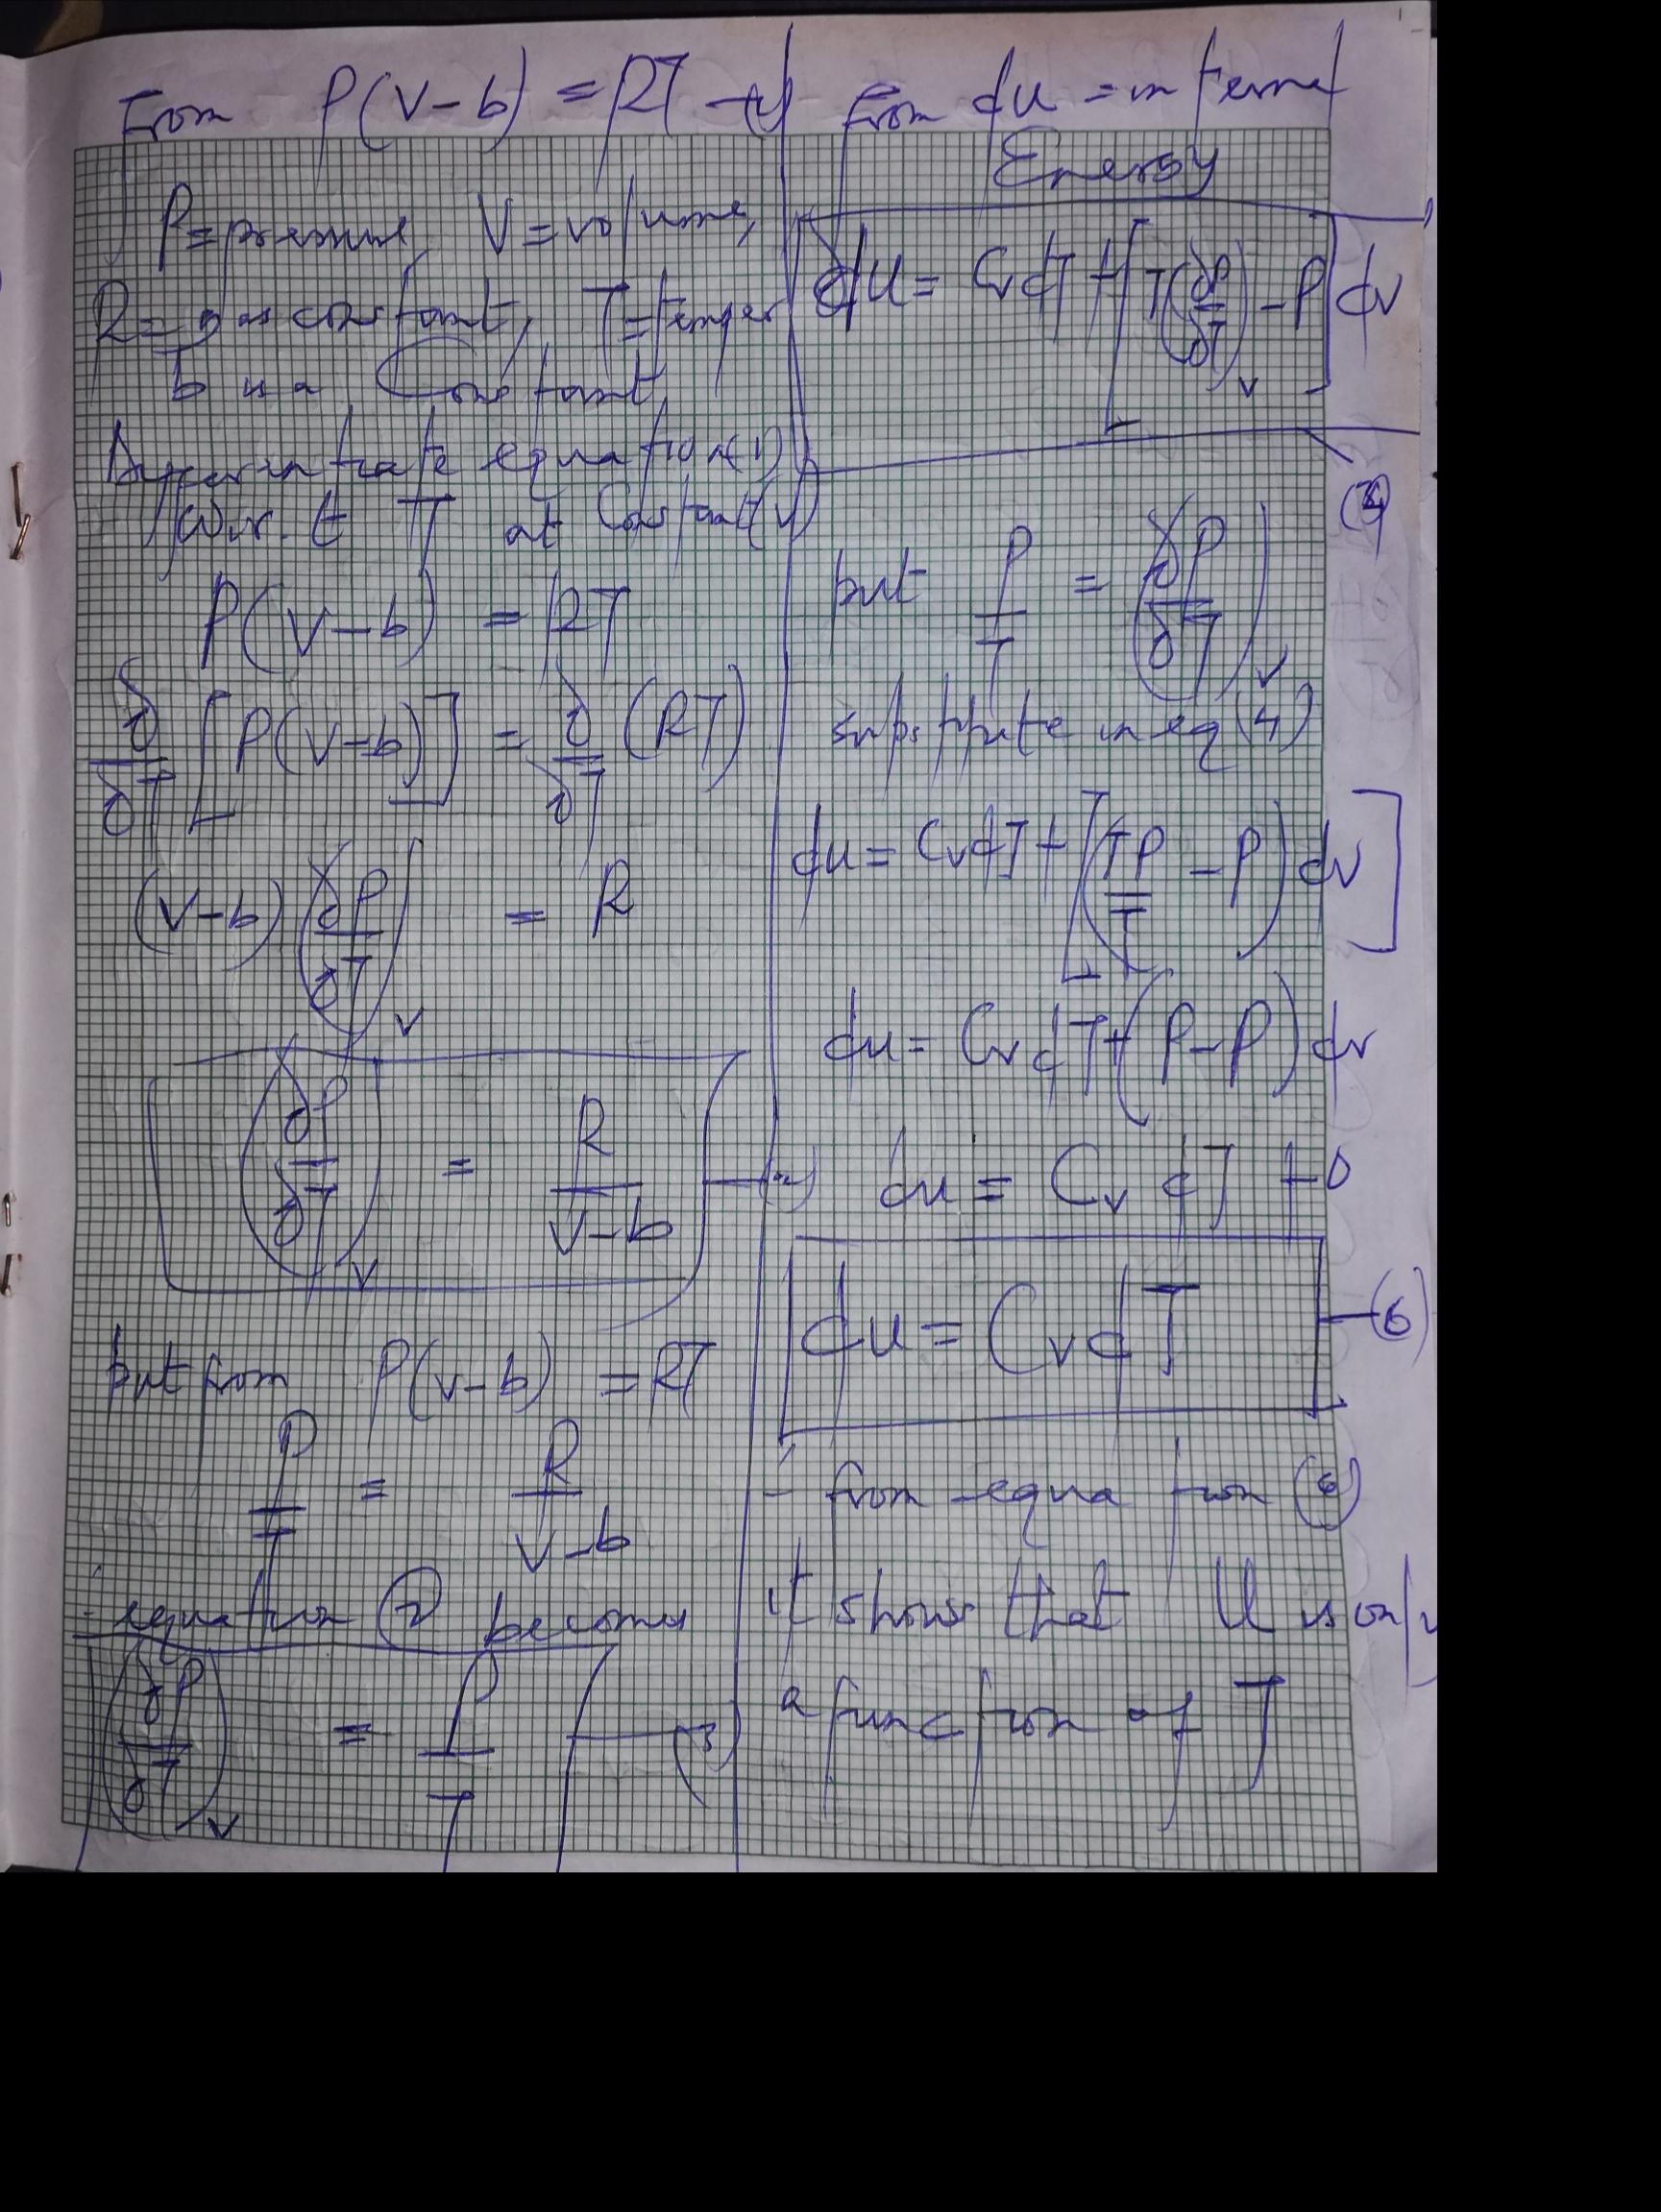 From P(V-b) = RT -(1)
P=pressure, V=volume,
R=gas constant, T=temper
b is a Constant
Differintiate equation(1)
W.r.t T at Constant(v)
P(V-b) = RT
δ/δT [P(V-b)] = δ/δT (RT)
(V-b) (δP/δT)v = R
(δP/δT)v = R/(V-b) -(2)
but from P(V-b) = RT
P/T = R/(V-b)
∴ equation (2) becomes
(δP/δT)v = P/T -(3)
from du = internal
Energy
du = CvdT + [T(δP/δT)v - P] dv
(4)
but P/T = (δP/δT)v
substitute in eq (4)
du = CvdT + [(TP/T - P) dv]
du = CvdT + (P-P) dv
du = Cv dT + 0
du = CvdT -(6)
∴ from equation (6)
it shows that U is only
a function of T